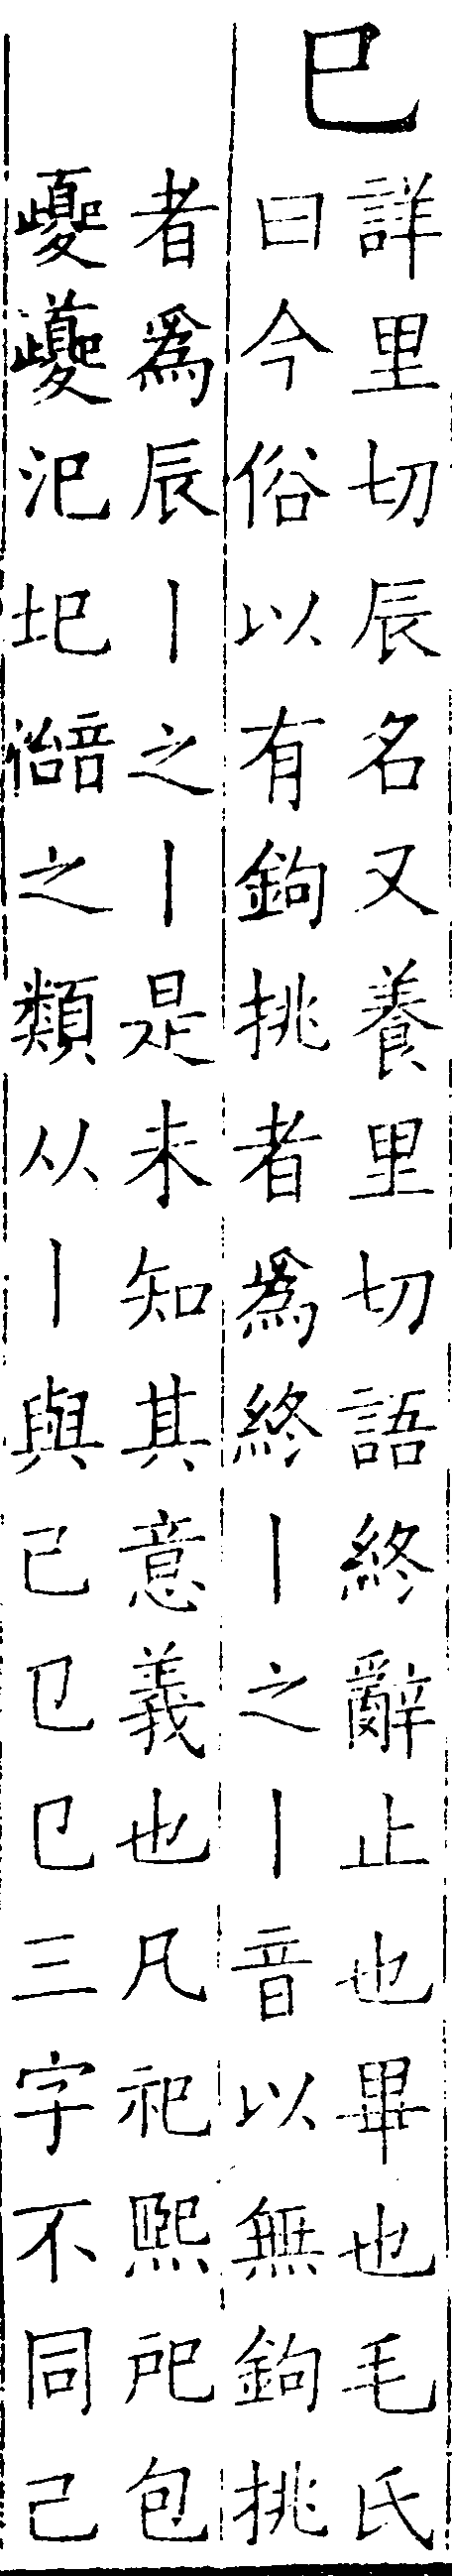 巳
詳里切辰名又養里切語終辭止也畢也毛氏
曰今俗以有鉤挑者爲終丨之丨音以無鉤挑
者爲辰丨之丨是未知其意義也凡祀熙戺包
夔虁汜圯之類从丨與己㔾巳三字不同己